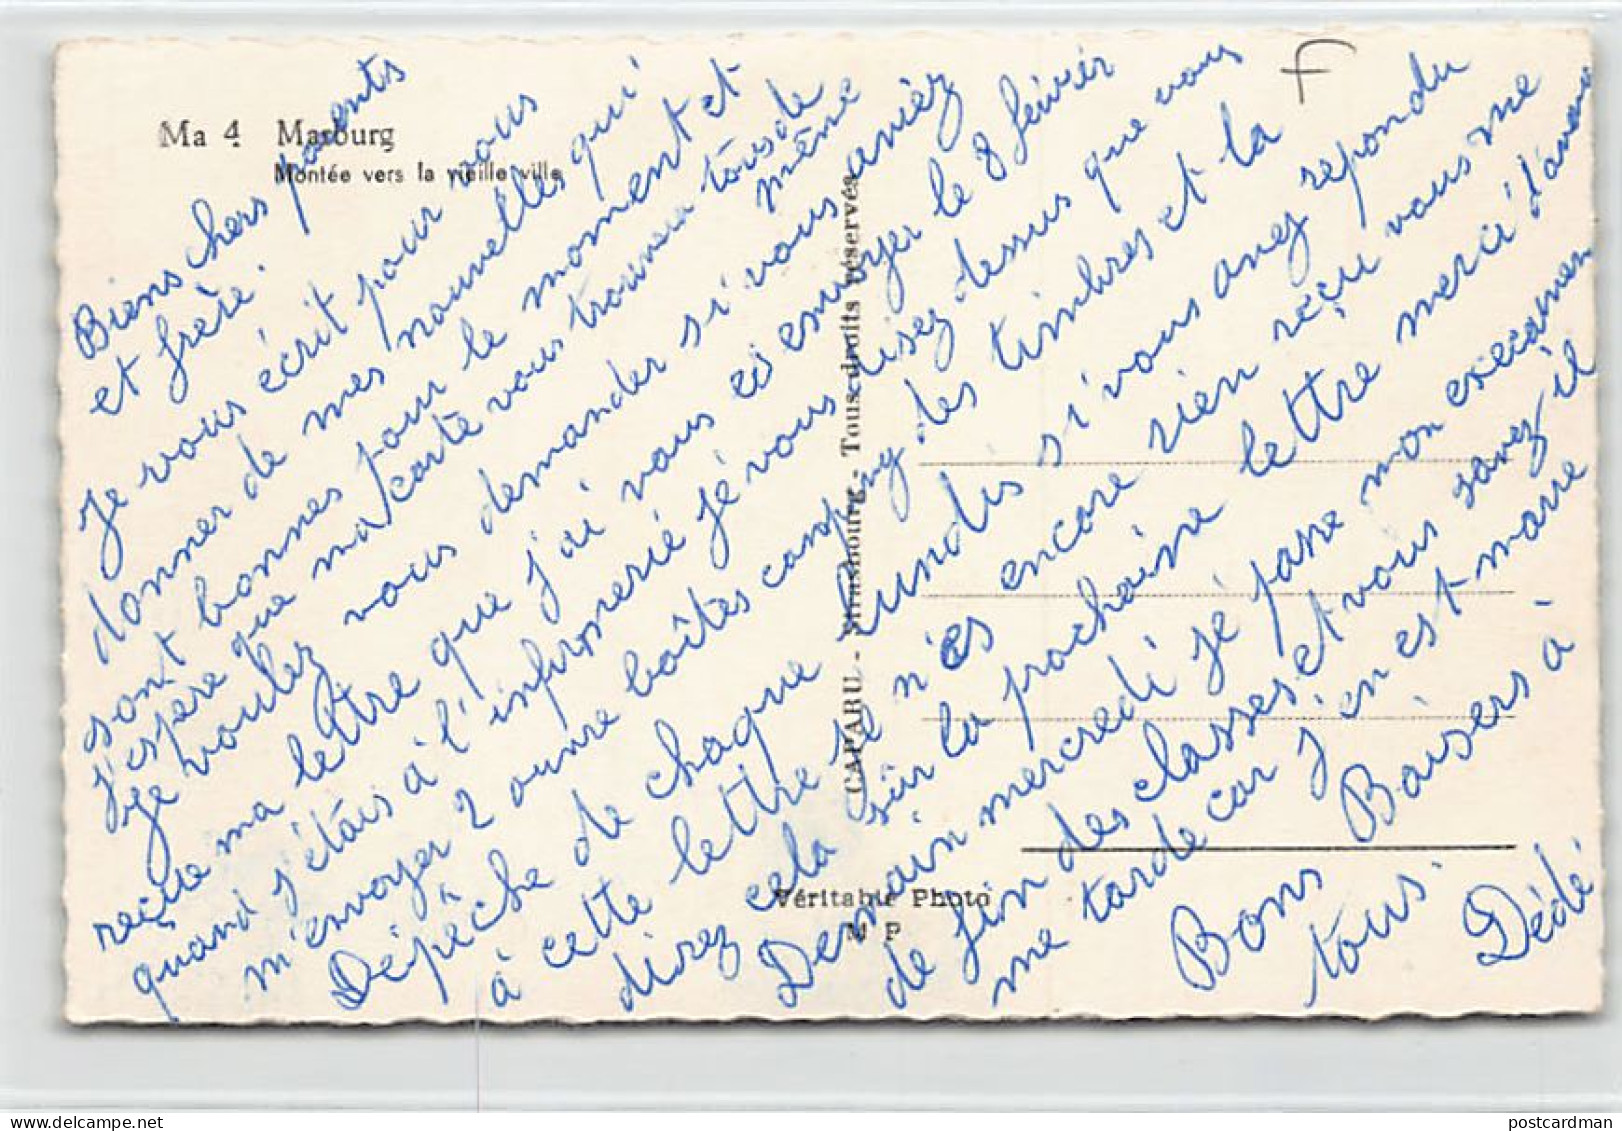 Ma 4 Marbourg
Montée vers la vieille ville
CAPARU - Strasbourg - Tous droits réservés
Véritable Photo
M P
F
Biens chers parents
et frère
Je vous écrit pour vous
donner de mes nouvelles qui
sont bonnes pour le moment et
j'espère que ma carte vous trouvera tous de même
je voulez vous demander si vous aviez
reçue ma lettre que j'ai vous ai envoyer le 8 février
quand j'étais à l'infirmerie je vous disez dessus que vous
m'envoyer 2 ouvre boîtes camping des timbres et la
Dépêche de chaque lundis si vous avez repondu
à cette lettre je n'es encore rien reçu vous me
direz cela sûr la prochaine lettre merci d'avance
Demain mercredi je passe mon execamen
de fin des classes et vous savez il
me tarde car j'en est marre
Bons Baisers à
tous.
Dédé
postcardman